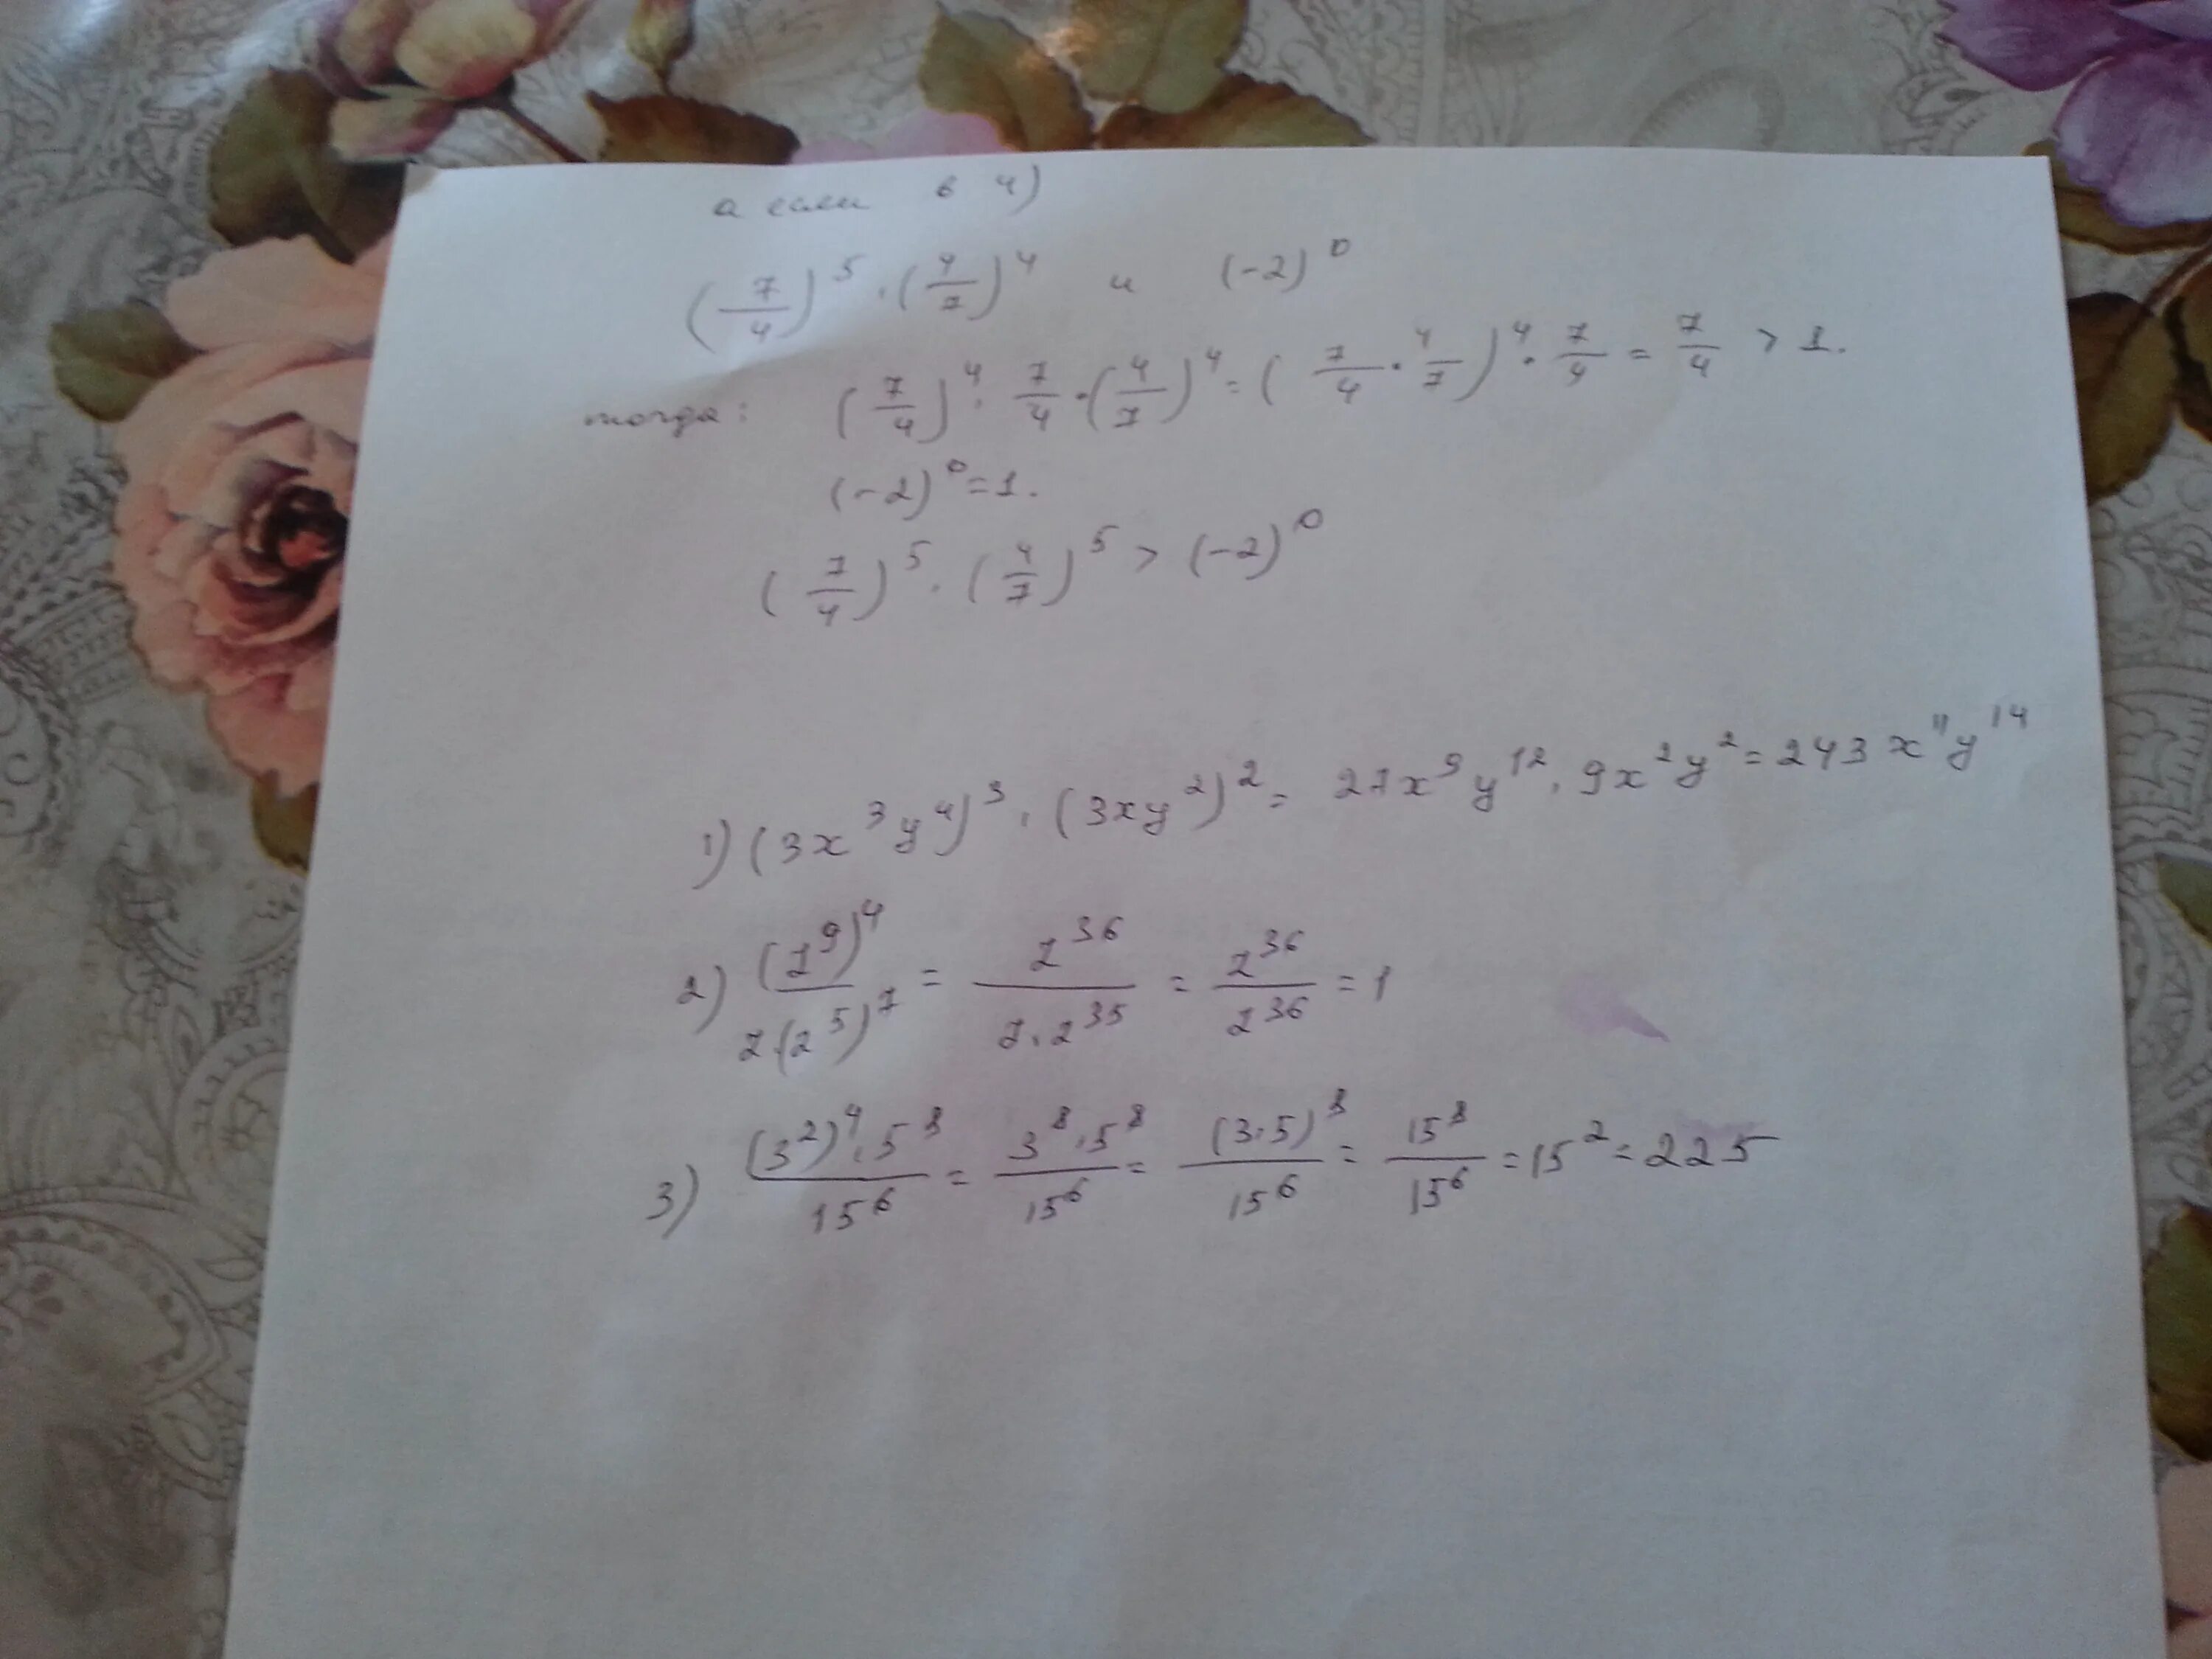 а если в 4)
(7/4)^5 · (4/7)^4 и (-2)^0
тогда: (7/4)^4 · 7/4 · (4/7)^4 = (7/4 · 4/7)^4 · 7/4 = 7/4 > 1.
(-2)^0 = 1.
(7/4)^5 · (4/7)^5 > (-2)^0
1) (3x^3y^4)^3 · (3xy^2)^2 = 27x^9y^12 · 9x^2y^2 = 243x^11y^14
2) (z^9)^4 / z·(z^5)^7 = z^36 / z·z^35 = z^36 / z^36 = 1
3) (3^2)^4 · 5^8 / 15^6 = 3^8 · 5^8 / 15^6 = (3·5)^8 / 15^6 = 15^8 / 15^6 = 15^2 = 225